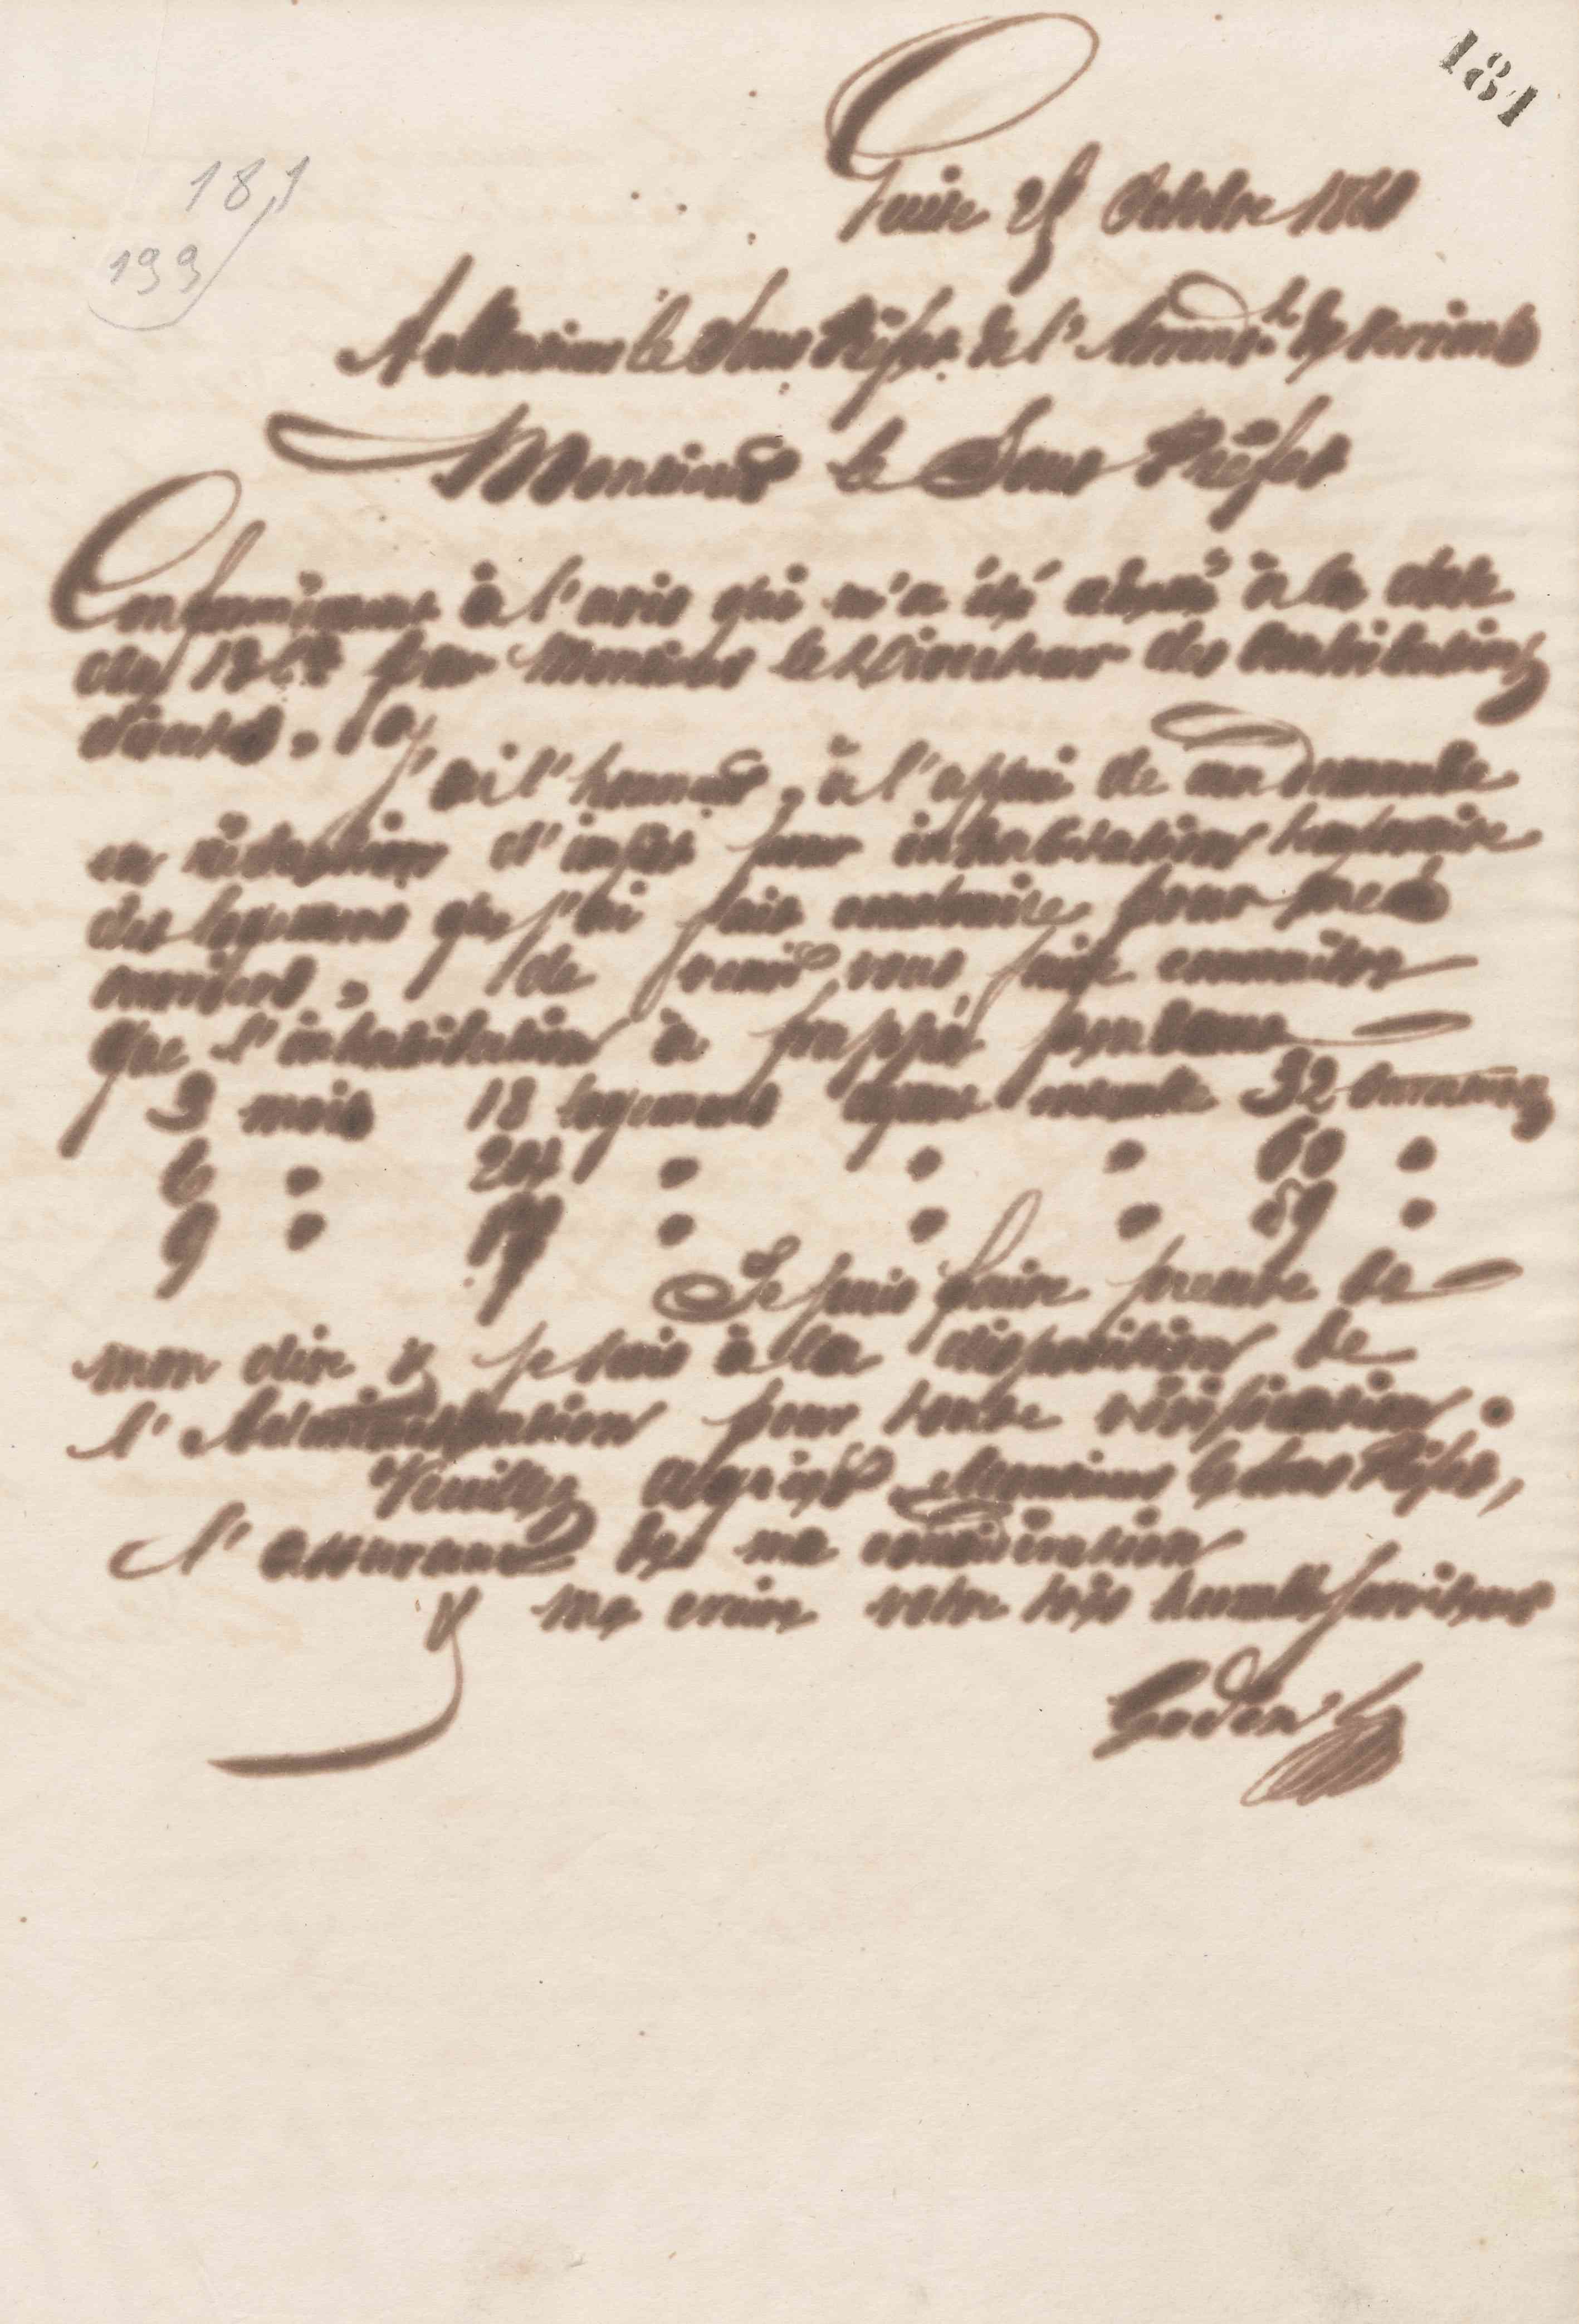 181
181
199
Guise 25 Octobre 1860
A Monsieur le Sous Préfet de l'Arrond.t de Vervins
Monsieur le Sous Préfet
Conformément à l'avis qui m'a été adressé à la date
du par Monsieur le Directeur des Contributions
directes,
J'ai l'honneur, à l'appui de ma demande
en réduction d'impôt pour inhabitation temporaire
des logements que j'ai fait construire pour mes
ouvriers, de venir vous faire connaître
que l'inhabitation a frappé pendant
3 mois 18 logements ayant ensemble 32 ouvertures
6 " " " " 60 "
9 " 19 " " " 59 "
Je puis faire preuve de
mon dire & je suis à la disposition de
l'Administration pour toute vérification.
Veuillez agréer Monsieur le Sous Préfet,
l'assurance de ma considération
& me croire votre très humble serviteur
Godin